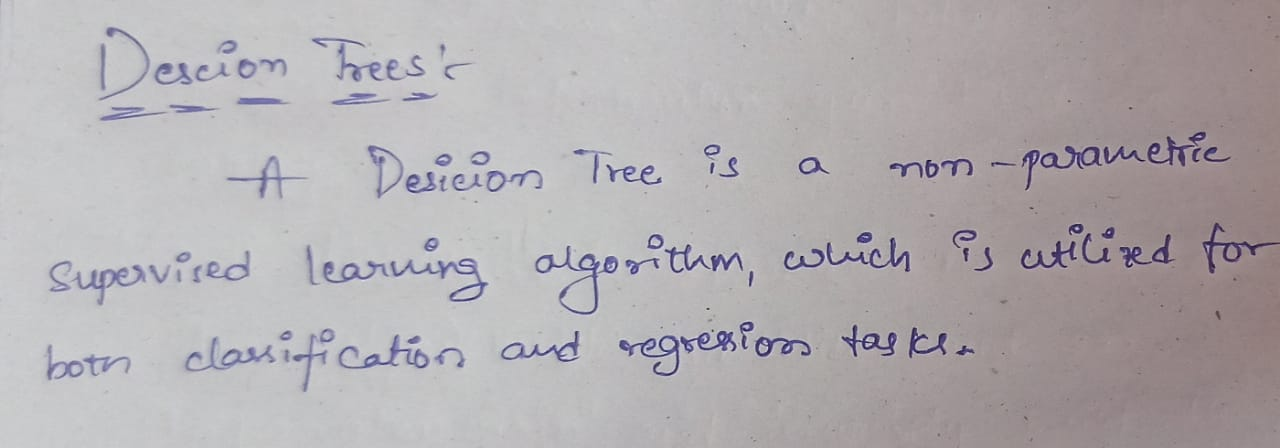 Descion Trees:-
A Desicion Tree is a non-parametric
supervised learning algorithm, which is utilized for
both classification and regression tasks.